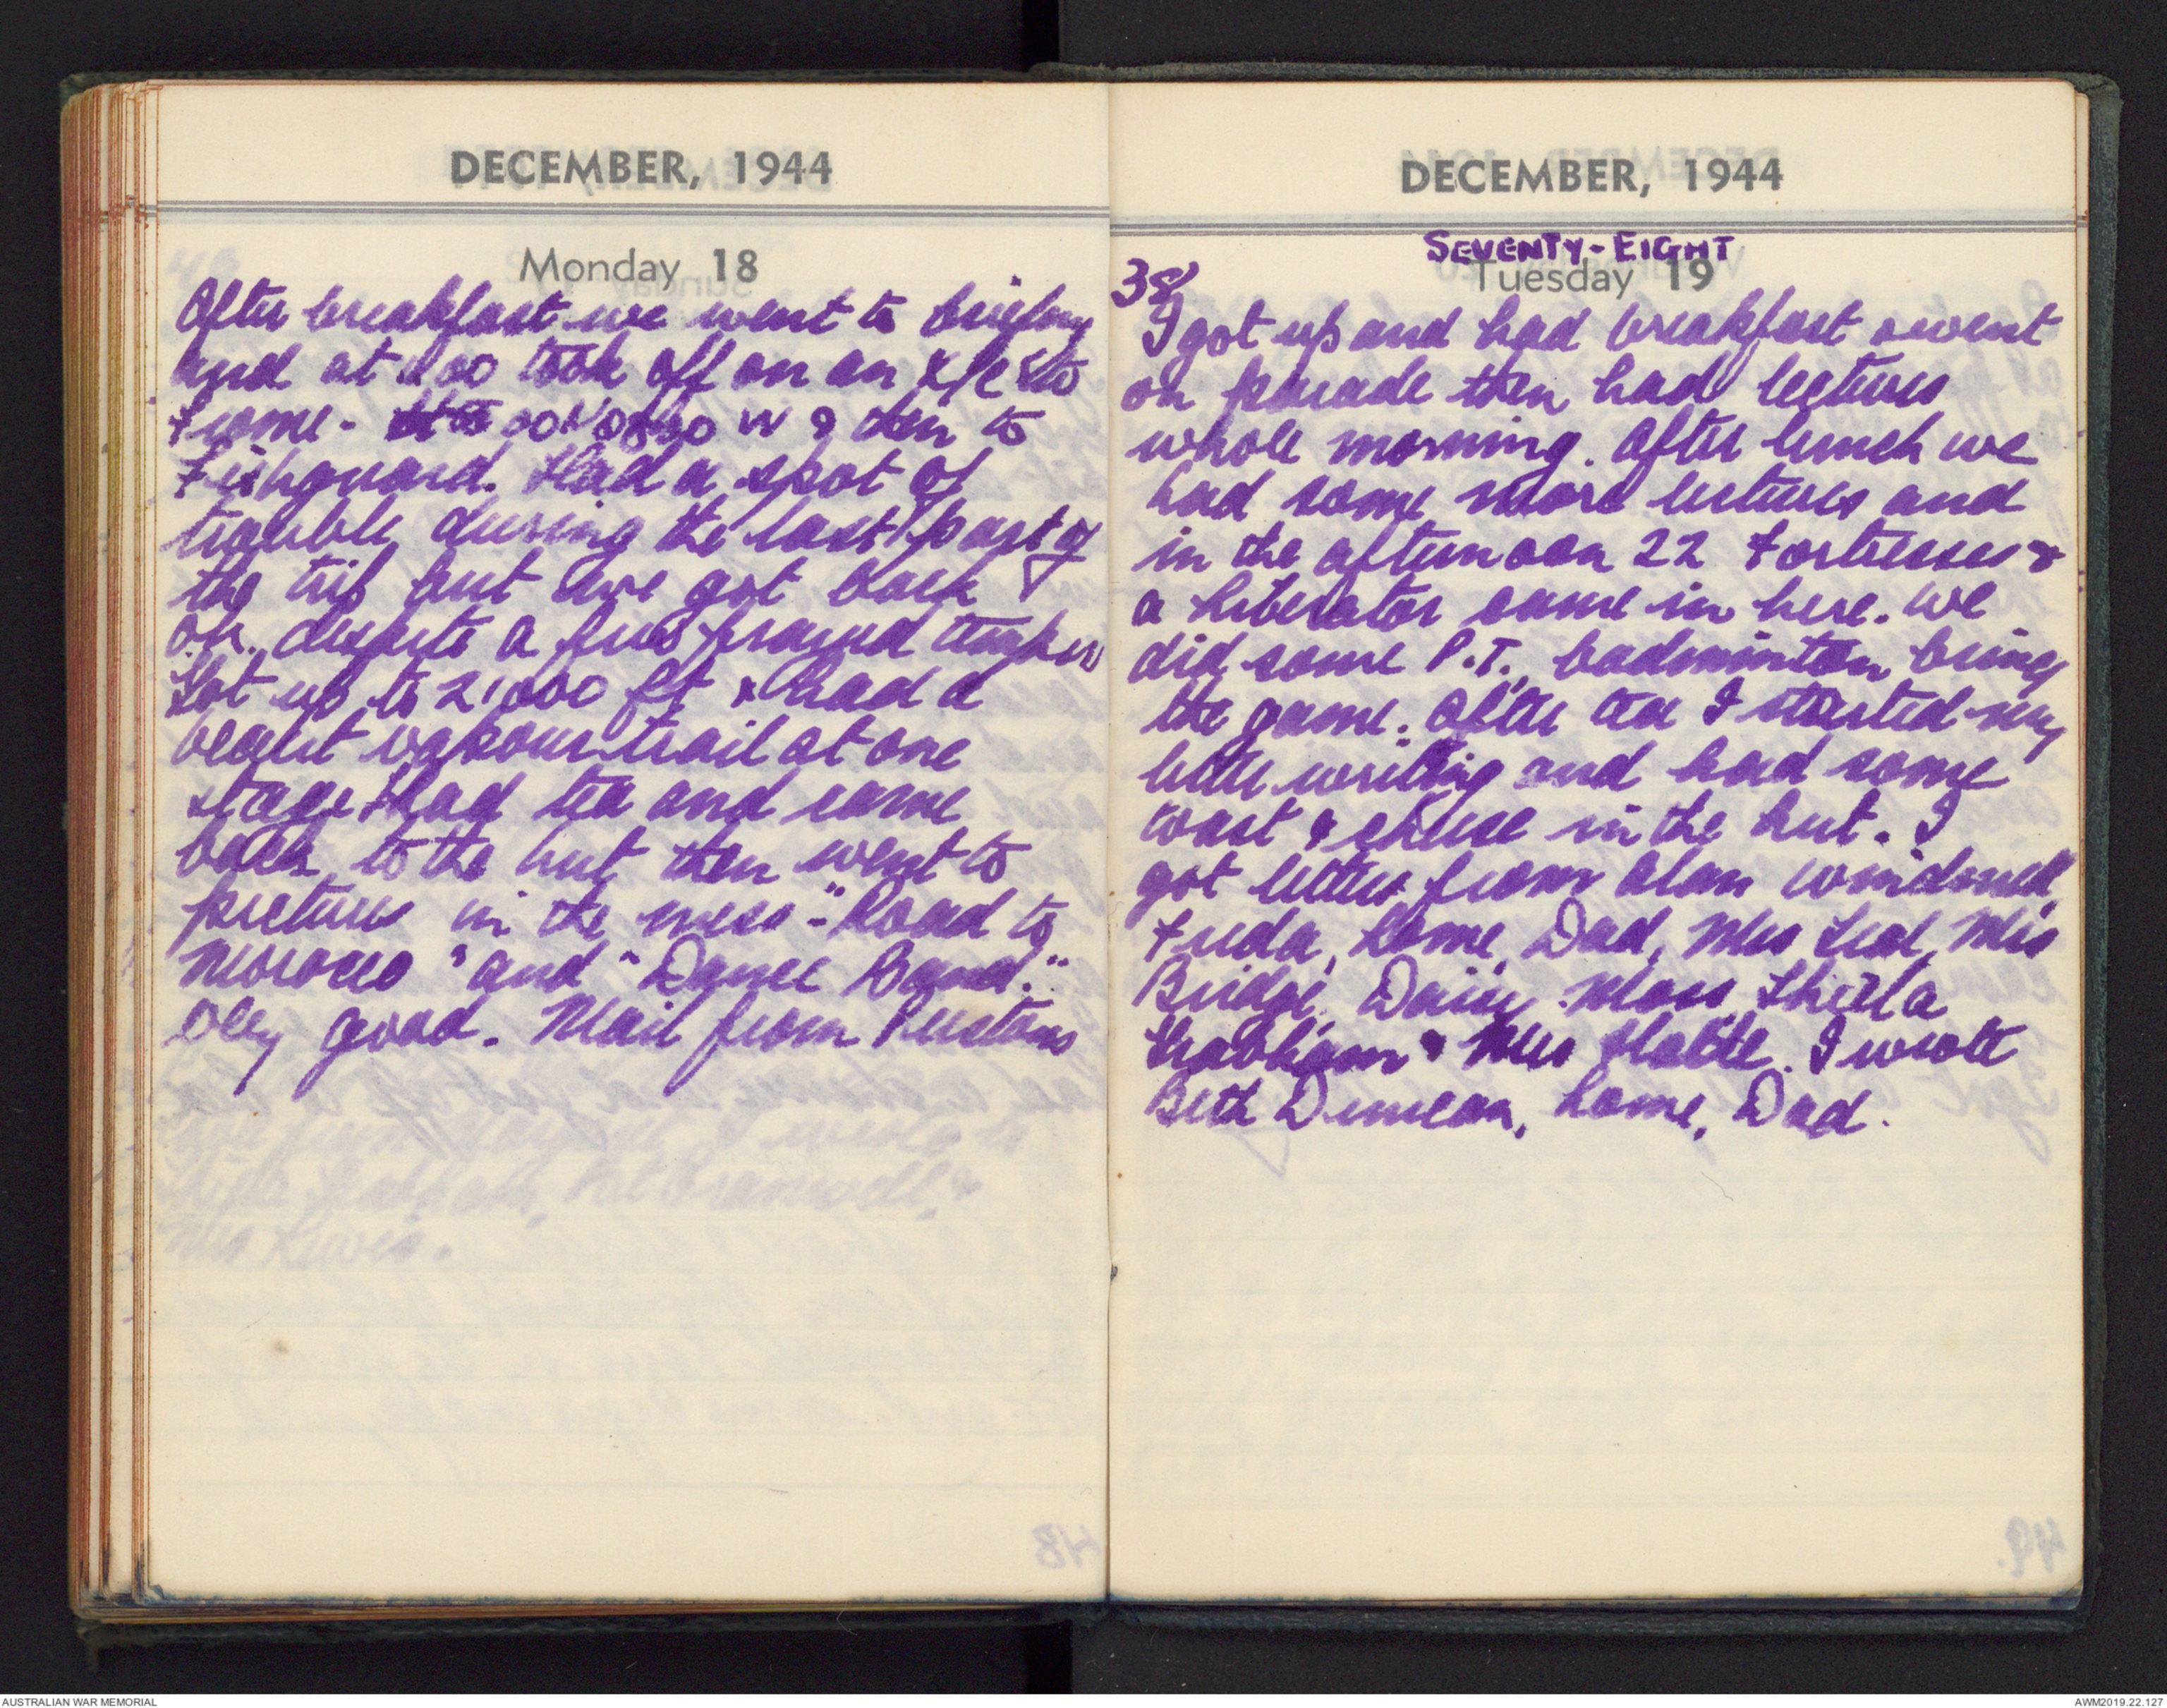 DECEMBER, 1944
Monday 18
After breakfast we went to briefing
and at 1100 took off on an X/C to
Frome - 00 W & then to
Fishguard. Had a spot of
trouble during the last part of
the trip but we got back
O.K. despite a few frayed tempers
Got up to 21,000 ft & had a
vapour trail at one
stage Had tea and came
back to the hut then went to
pictures in the mess - "Road to
Morocco" and "Dance Band."
Very good. Mail from Rustons
DECEMBER, 1944
SEVENTY-EIGHT
Tuesday 19
38
I got up and had breakfast & went
on parade then had lectures
whole morning. After lunch we
had some more lectures and
in the afternoon 22 Fortresses &
a Liberator came in here. We
did some P.T., badminton being
the game. After tea I started my
letter writing and had some
toast & cheese in the hut. I
got letters from Alan
Freda, home, Dad, Mrs Mrs
Bridge, Moss, Sheila
Grabham & Mrs I wrote
Beth Duncan, home, Dad.
48
49.
AUSTRALIAN WAR MEMORIAL
AWM2019.22.127